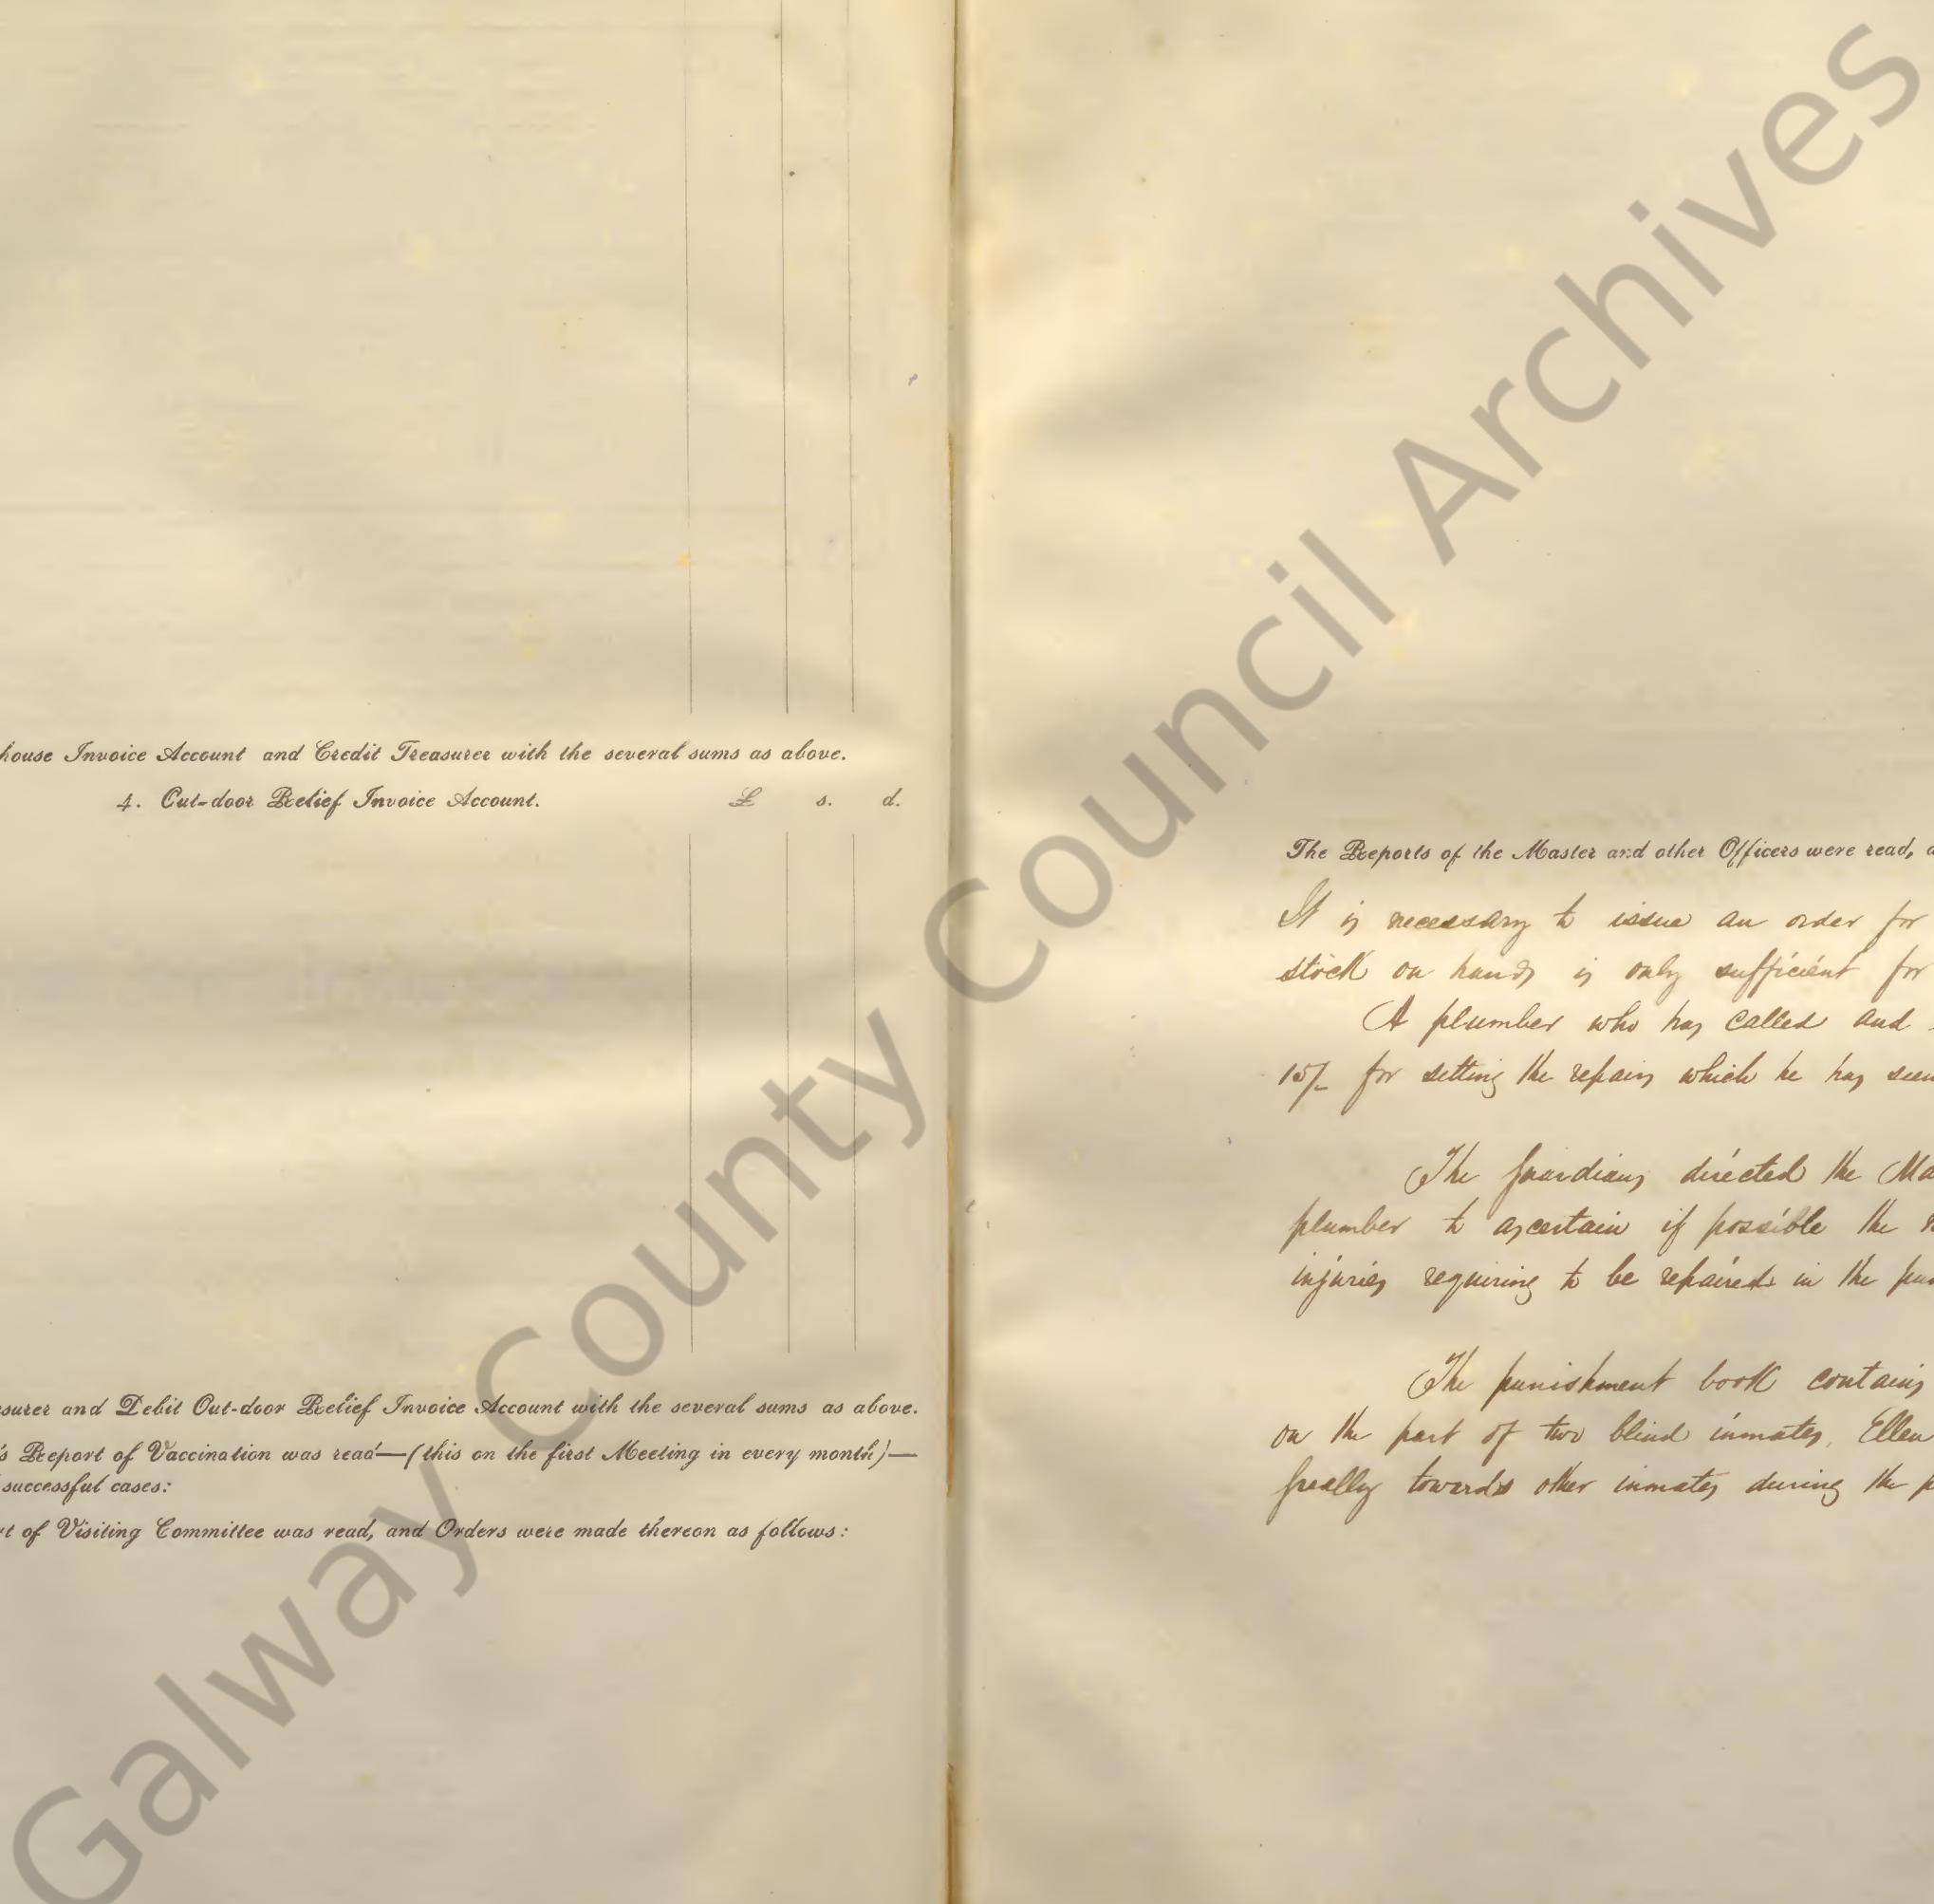 house Invoice Account and Credit Treasurer with the several sums as above.
4. Out-door Relief Invoice Account. £ s. d.
surer and Debit Out-door Relief Invoice Account with the several sums as above.
's Report of Vaccination was read—(this on the first Meeting in every month)—
successful cases:
rt of Visiting Committee was read, and Orders were made thereon as follows:
The Reports of the Master and other Officers were read,
It is necessary to issue an order for
stock on hands is only sufficient for
A plumber who has called and
15/- for setting the repairs which he has seen
The Guardians directed the Ma
plumber to ascertain if possible the
injuries requiring to be repaired in the
The punishment book contains
on the part of two blind inmates, Ellen
Greally towards other inmates during the
Galway County Council Archives